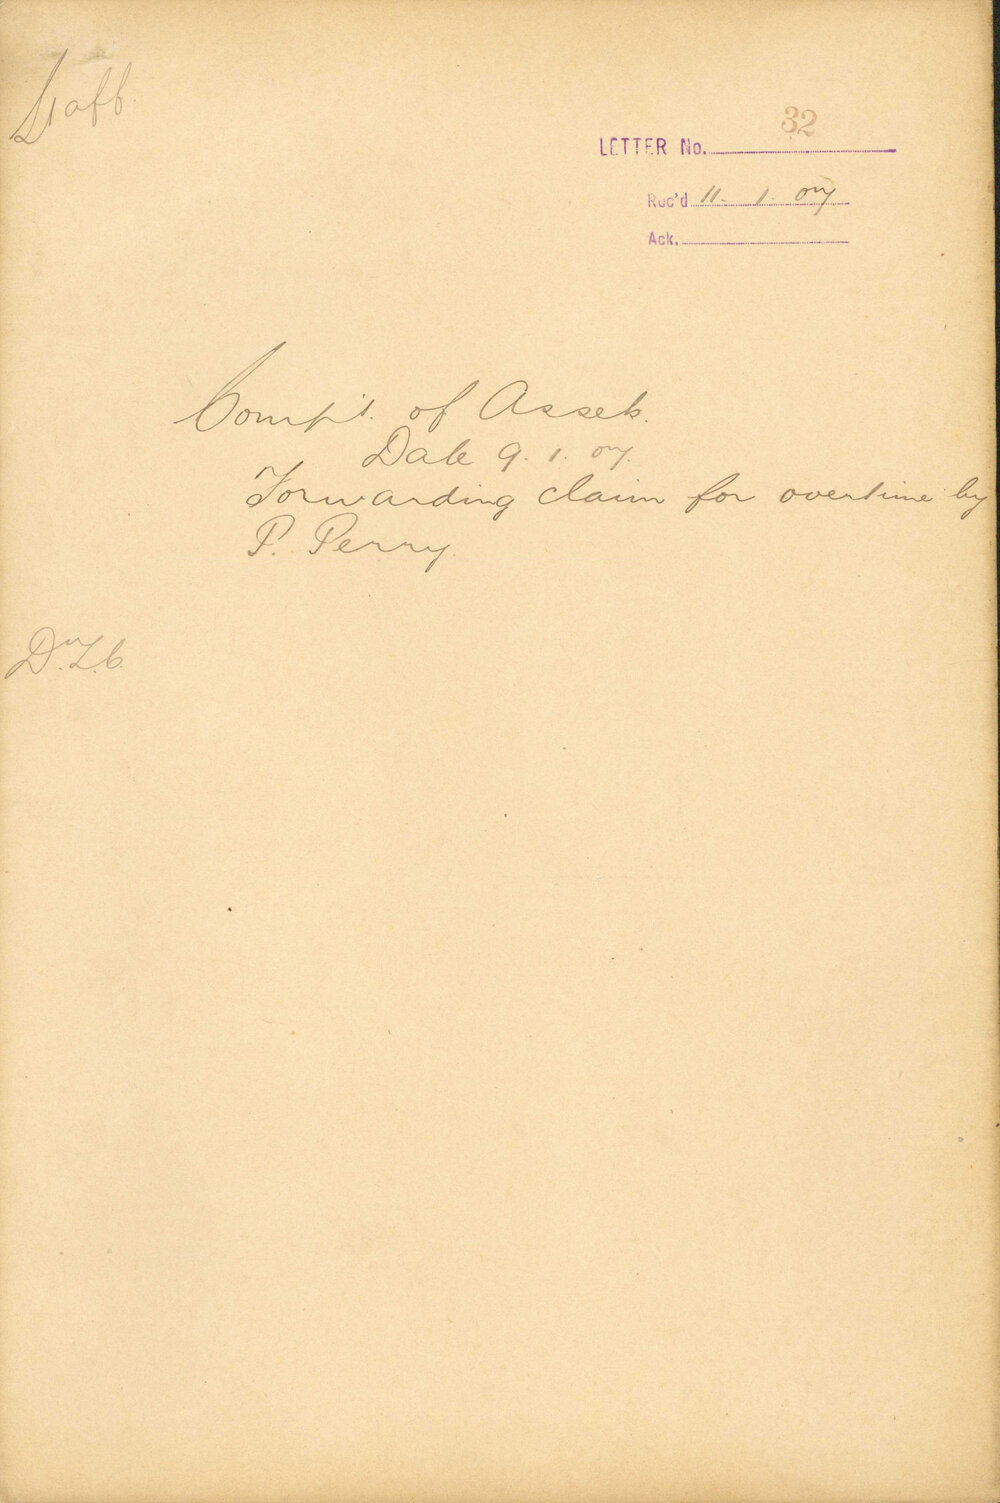 Staff.
32
LETTER No.
Rec'd 11. 1. 07
Ack.
Comp't. of Assets.
Date 9. 1. 07.
Forwarding claim for overtime by
P. Perry.